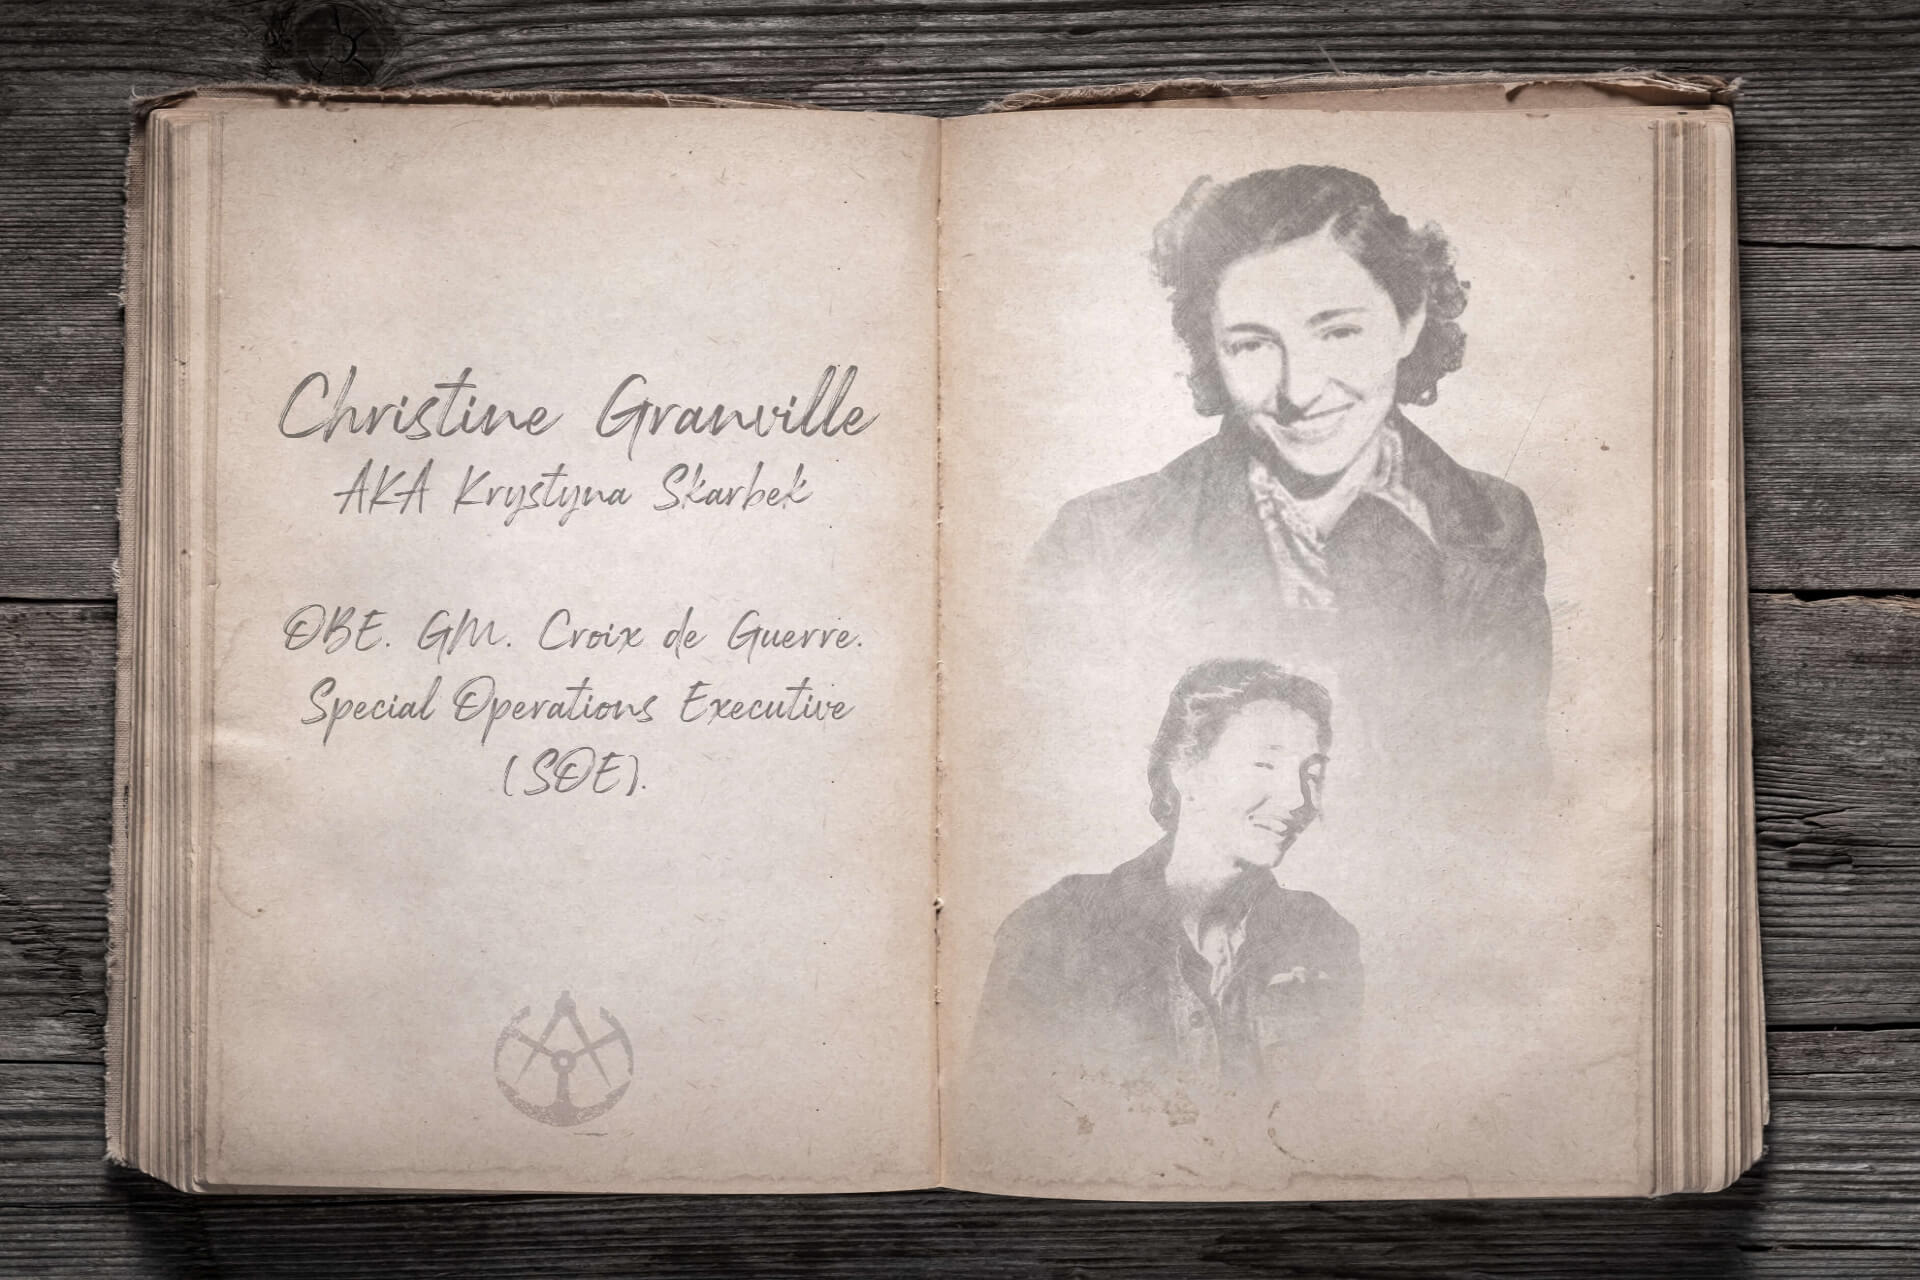 Christine Granville
AKA Krystyna Skarbek
OBE. GM. Croix de Guerre.
Special Operations Executive
(SOE).